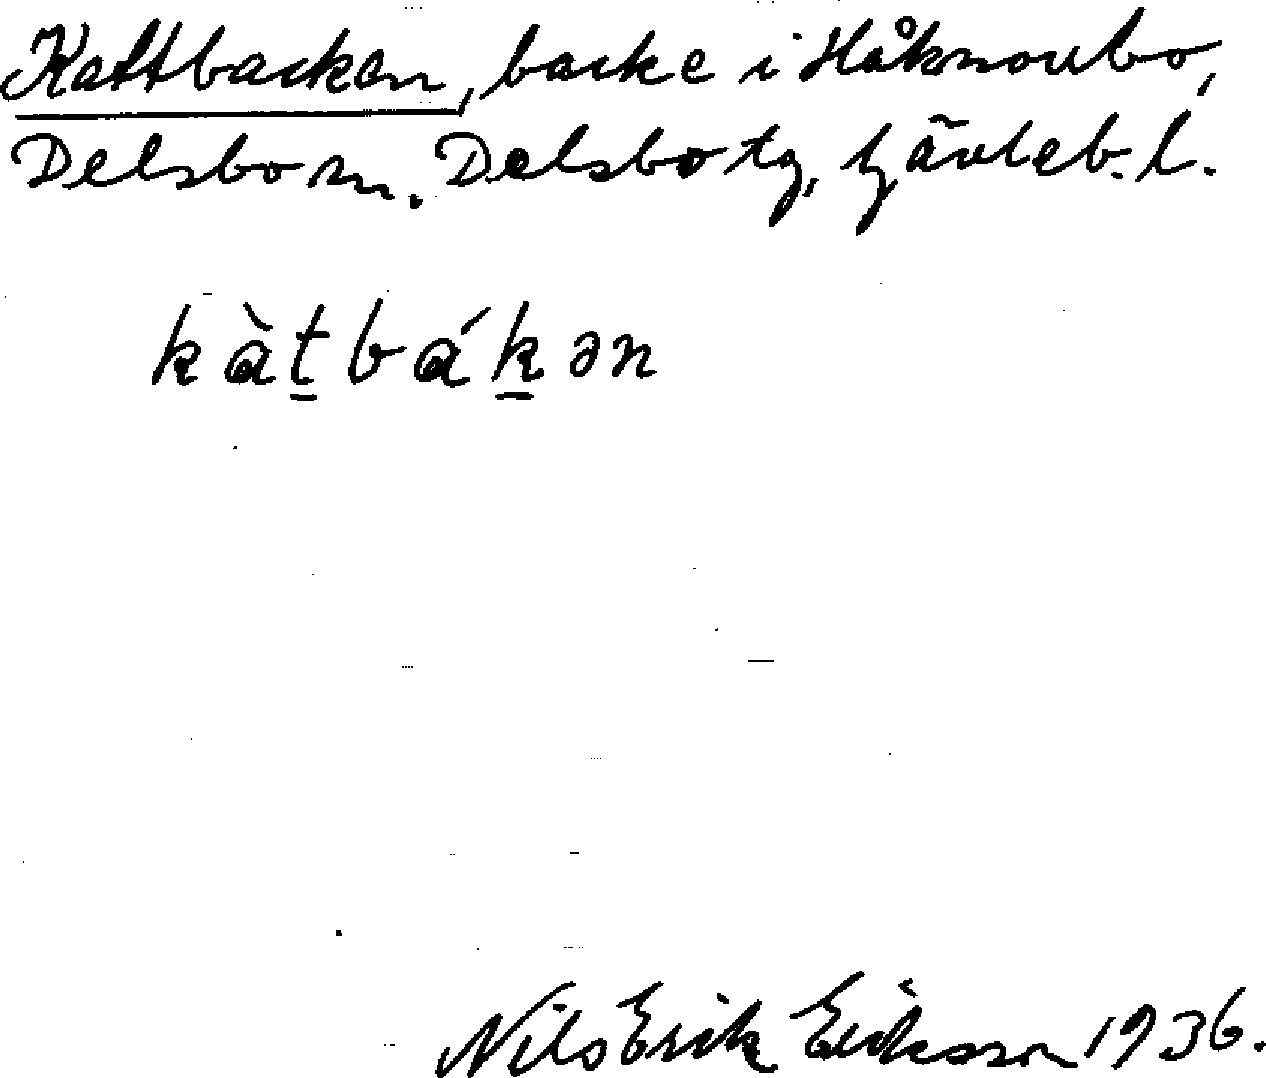 Kattbacken, backe i Håknorbo,
Delsbo sn. Delsbo tg, Gävleb. l.
kàt̲bák̲ən
Nils Erik Eriksson 1936.